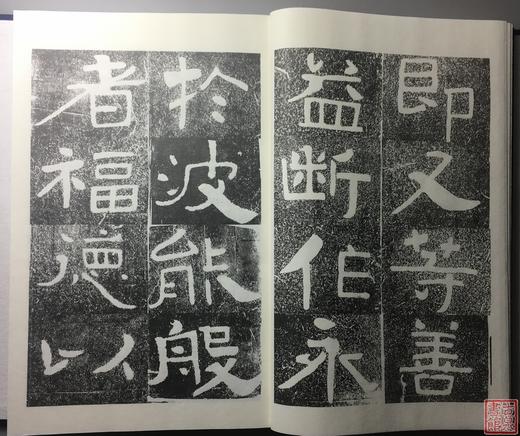 即又等善
益断作永
於波能般
者福德以